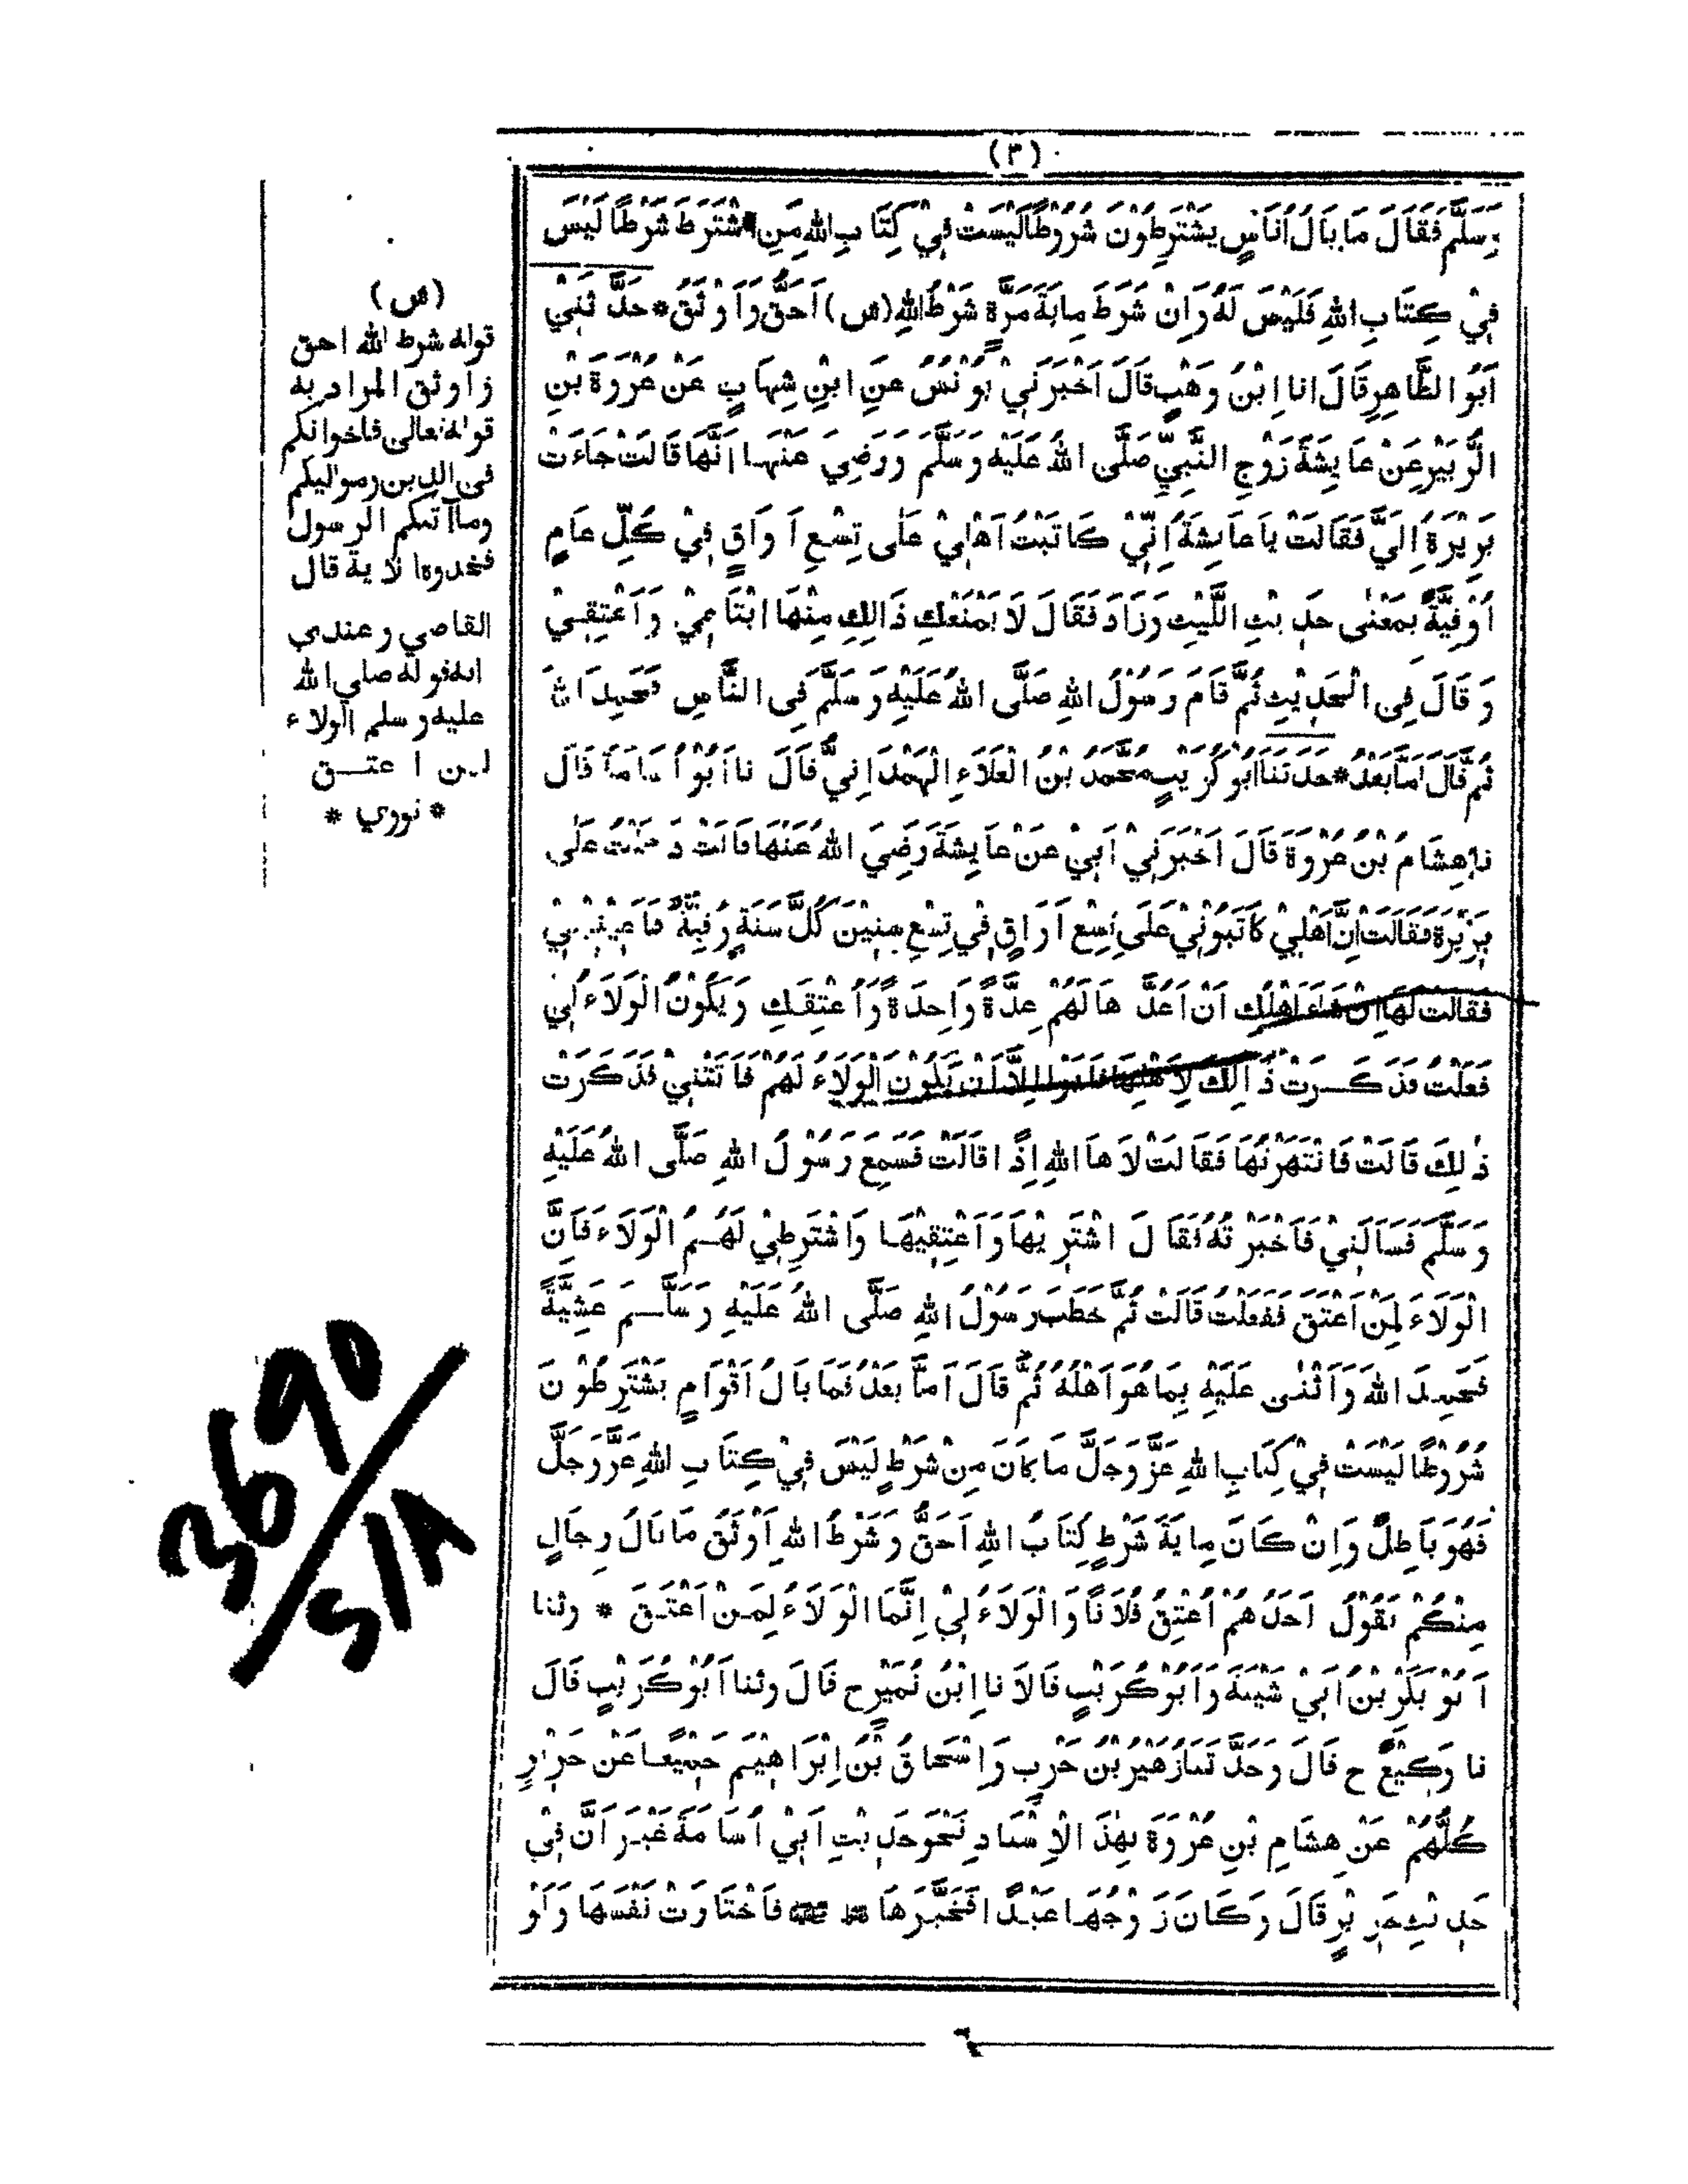 (٣)
وَسَلَّمَ فَقَالَ مَا بَالُ اُنَاسٍ يَشْتَرِطُوْنَ شُرُوْطًا لَيْسَتْ فِيْ كِتَابِ اللهِ مَنِ اشْتَرَطَ شَرْطًا لَيْسَ
فِيْ كِتَابِ اللهِ فَلَيْسَ لَهُ وَاِنْ شَرَطَ مِايَةَ مَرَّةٍ شَرْطُ اللهِ (ش) اَحَقُّ وَاَوْثَقُ * حَدَّ ثَنِيْ
اَبُو الطَّاهِرِ قَالَ انا اِبْنُ وَهْبٍ قَالَ اَخْبَرَنِيْ يُوْنُسُ عَنِ ابْنِ شِهَابٍ عَنْ عُرْوَةَ بْنِ
الزُّبَيْرِ عَنْ عَايِشَةَ زَوْجِ النَّبِيِّ صَلَّى اللهُ عَلَيْهِ وَسَلَّمَ وَرَضِيَ عَنْهَا اَنَّهَا قَالَتْ جَاءَتْ
بَرِيْرَةُ اِلَيَّ فَقَالَتْ يَا عَايِشَةُ اِنِّيْ كَاتَبْتُ اَهْلِيْ عَلٰى تِسْعِ اَوَاقٍ فِيْ كُلِّ عَامٍ
اُوْقِيَّةٌ بِمَعْنٰى حَدِيْثِ اللَّيْثِ وَزَادَ فَقَالَ لَا يَمْنَعُكِ ذَالِكِ مِنْهَا ابْتَاعِيْ وَاَعْتِقِيْ
وَقَالَ فِى الْحَدِيْثِ ثُمَّ قَامَ رَسُوْلُ اللهِ صَلَّى اللهُ عَلَيْهِ وَسَلَّمَ فِى النَّاسِ فَحَمِدَ اللهَ
ثُمَّ قَالَ اَمَّا بَعْدُ * حَدَثَنَا اَبُوْ كُرَيْبٍ مُحَمَّدُ بْنُ الْعَلَاءِ الْهَمْدَانِيُّ قَالَ نا اَبُوْ اُسَامَةَ قَالَ
نا هِشَامُ بْنُ عُرْوَةَ قَالَ اَخْبَرَنِيْ اَبِيْ عَنْ عَايِشَةَ رَضِيَ اللهُ عَنْهَا قَالَتْ دَخَلَتْ عَلَى
بَرِيْرَةُ فَقَالَتْ اِنَّ اَهْلِيْ كَاتَبُوْنِيْ عَلَى تِسْعِ اَوَاقٍ فِيْ تِسْعِ سِنِيْنَ كُلَّ سَنَةٍ وُقِيَّةٌ فَاَعِيْنِيْنِيْ
فَقَالَتْ لَهَا اِنْ شَاءَ اَهْلُكِ اَنْ اَعُدَّ هَا لَهُمْ عِدَّةً وَاحِدَةً وَاُعْتِقَكِ وَيَكُوْنُ الْوَلَاءُ لِيْ
فَعَلْتُ فَذَكَرَتْ ذَالِكَ لِاَهْلِهَا فَابَوْا اِلَّا اَنْ يَكُوْنَ الْوَلَاءُ لَهُمْ فَاَتَتْنِيْ فَذَكَرَتْ
ذٰلِكَ قَالَتْ فَانْتَهَرْتُهَا فَقَالَتْ لَا هَا اللهِ اِذًا قَالَتْ فَسَمِعَ رَسُوْلُ اللهِ صَلَّى اللهُ عَلَيْهِ
وَسَلَّمَ فَسَاَلَنِيْ فَاَخْبَرْتُهُ فَقَالَ اشْتَرِيْهَا وَاَعْتِقِيْهَا وَاشْتَرِطِيْ لَهُمُ الْوَلَاءَ فَاِنَّ
الْوَلَاءَ لِمَنْ اَعْتَقَ فَفَعَلْتُ قَالَتْ ثُمَّ خَطَبَ رَسُوْلُ اللهِ صَلَّى اللهُ عَلَيْهِ وَسَلَّمَ عَشِيَّةً
فَحَمِدَ اللهَ وَاَثْنٰى عَلَيْهِ بِمَا هُوَ اَهْلُهُ ثُمَّ قَالَ اَمَّا بَعْدُ فَمَا بَالُ اَقْوَامٍ يَشْتَرِطُوْنَ
شُرُوْطًا لَيْسَتْ فِيْ كِتَابِ اللهِ عَزَّ وَجَلَّ مَا كَانَ مِنْ شَرْطٍ لَيْسَ فِيْ كِتَابِ اللهِ عَزَّ وَجَلَّ
فَهُوَ بَاطِلٌ وَاِنْ كَانَ مِايَةَ شَرْطٍ كِتَابُ اللهِ اَحَقُّ وَشَرْطُ اللهِ اَوْثَقُ مَا بَالُ رِجَالٍ
مِنْكُمْ يَقُوْلُ اَحَدُهُمْ اَعْتِقْ فُلَانًا وَالْوَلَاءُ لِيْ اِنَّمَا الْوَلَاءُ لِمَنْ اَعْتَقَ * وثنا
اَبُوْ بَكْرِ بْنُ اَبِيْ شَيْبَةَ وَاَبُوْ كُرَيْبٍ قَالَا نا اِبْنُ نُمَيْرٍ ح قَالَ وثنا اَبُوْ كُرَيْبٍ قَالَ
نا وَكِيْعٌ ح قَالَ وَحَدَّ ثَنَا زُهَيْرُ بْنُ حَرْبٍ وَاِسْحَاقُ بْنُ اِبْرَاهِيْمَ جَمِيْعًا عَنْ جَرِيْرٍ
كُلُّهُمْ عَنْ هِشَامِ بْنِ عُرْوَةَ بِهٰذَ الْاِسْنَادِ نَحْوَ حَدِيْثِ اَبِيْ اُسَامَةَ غَيْرَ اَنَّ فِيْ
حَدِيْثِ جَرِيْرٍ قَالَ وَكَانَ زَوْجُهَا عَبْدًا فَخَيَّرَهَا فَاخْتَارَتْ نَفْسَهَا وَلَوْ
(ش)
قوله شرط الله احق
واوثق المراد به
قوله تعالى فاخوانكم
فى الدين ومواليكم
وماآتٰكم الرسول
فخذوه الاية قال
القاضي وعندي
انه قوله صلي الله
عليه وسلم الولاء
لمن اعتق
* نووي *
3690
S/A